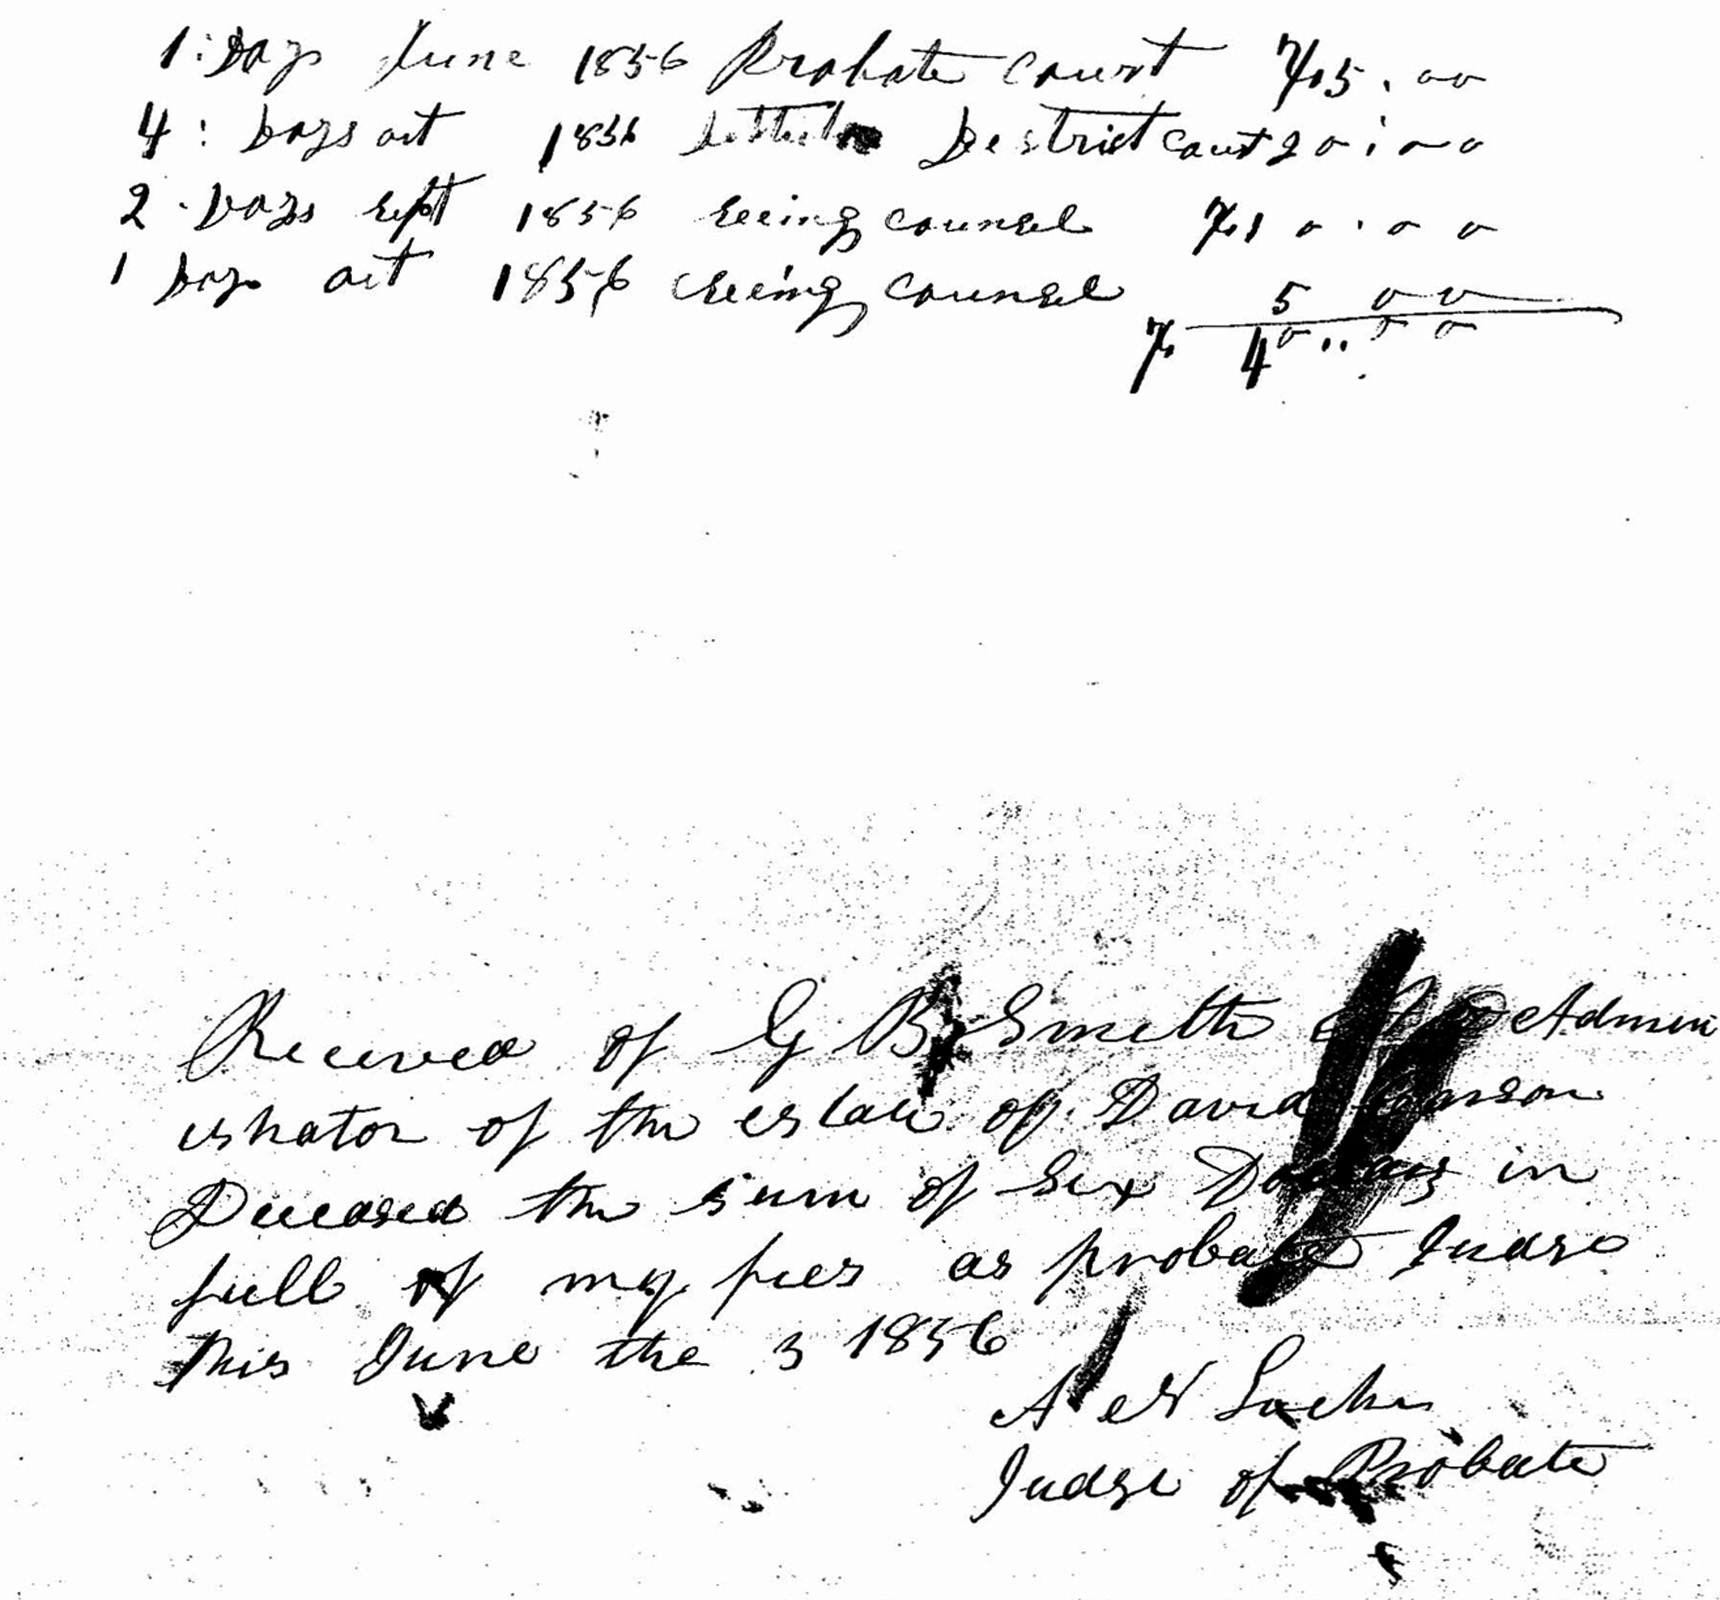 1: Day June 1856 Probate Court $5.00
4: Days oct 1856 District Court 20:00
2 Days sept 1856 seeing counsel $10.00
1 Day oct 1856 seeing counsel 5 00
$ 40..00
Received of G B Smith Admin
istrator of the estate of David
Deceased the sum of Six Dollars in
full of my fees as probate Judge
this June the 3 1856
A N
Judge of Probate